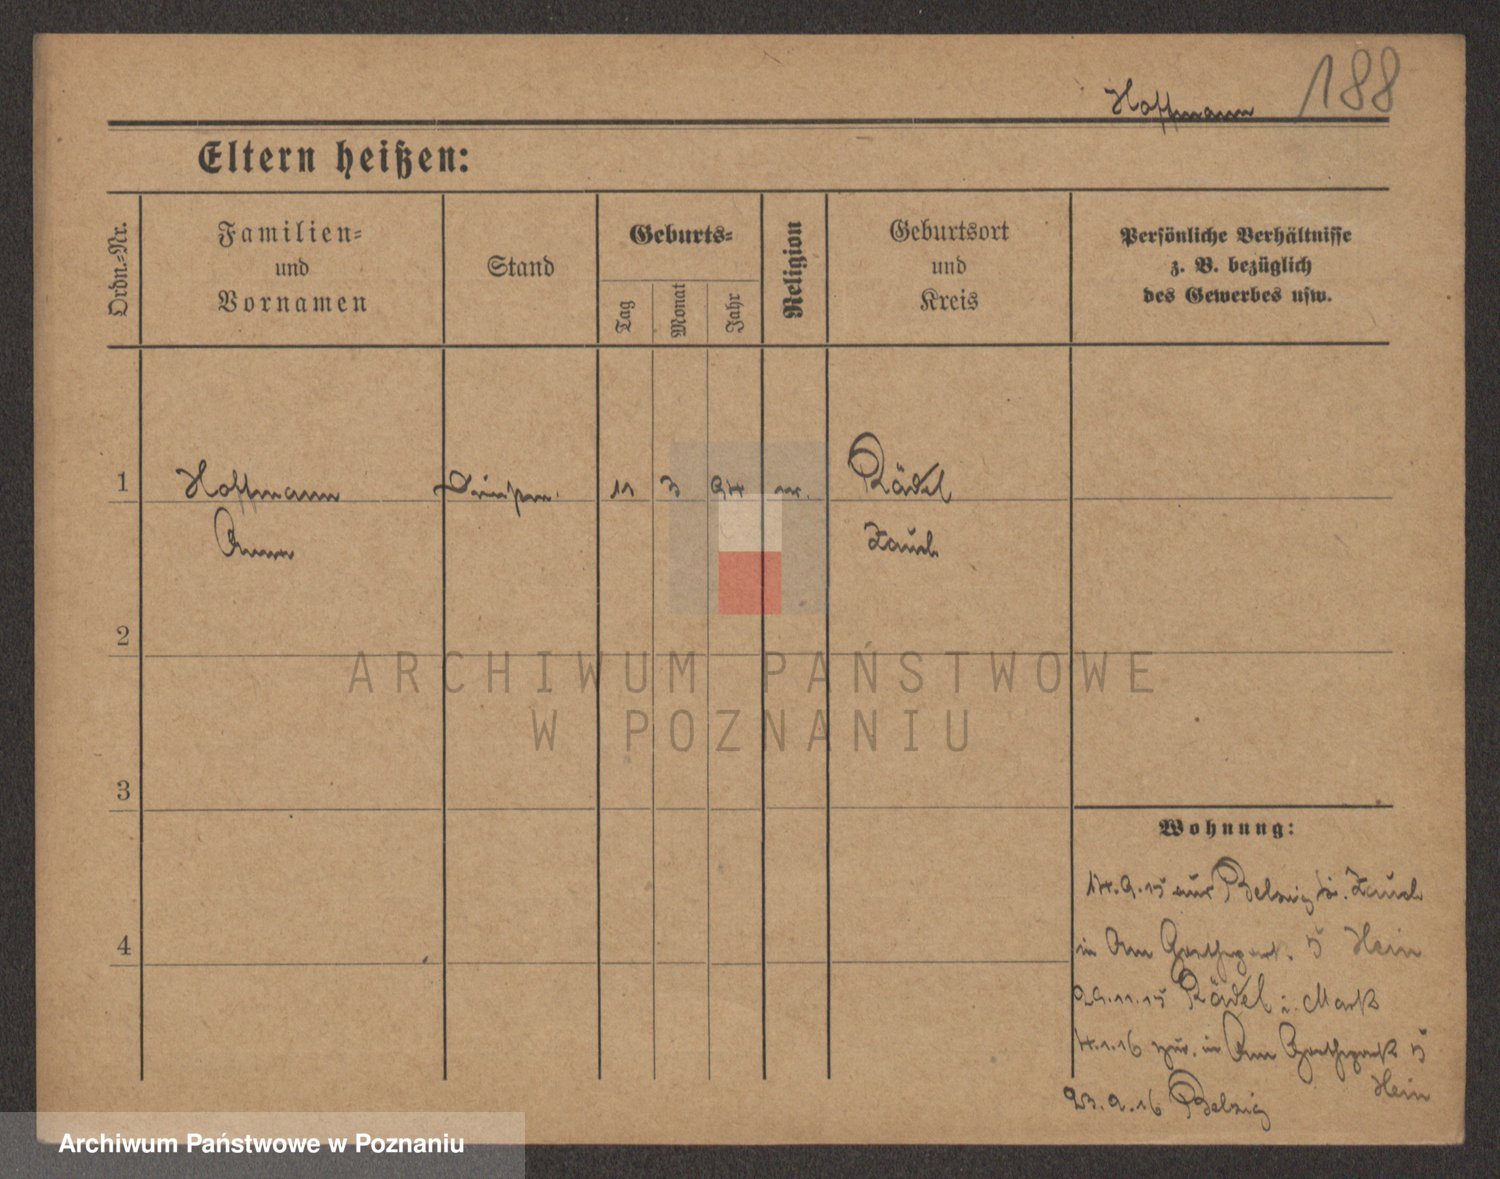 188
Hoffmann
Eltern heißen:
Ordn.-Nr.
Familien-
und
Vornamen
Stand
Geburts-
Tag
Monat
Jahr
Religion
Geburtsort
und
Kreis
Persönliche Verhältnisse
z. B. bezüglich
des Gewerbes usw.
1 Hoffmann 11 3 94 Rädel
Anna Zauch
2
3
4
ARCHIWUM PAŃSTWOWE
W POZNANIU
Wohnung:
14.9.15 aus Belzig Zauch
in Am 5 Hein
29.11.15 Rädel i. Mark
4.1.16 zur. in Am Goethepark 5
Hein
23.9.16 Belzig
Archiwum Państwowe w Poznaniu